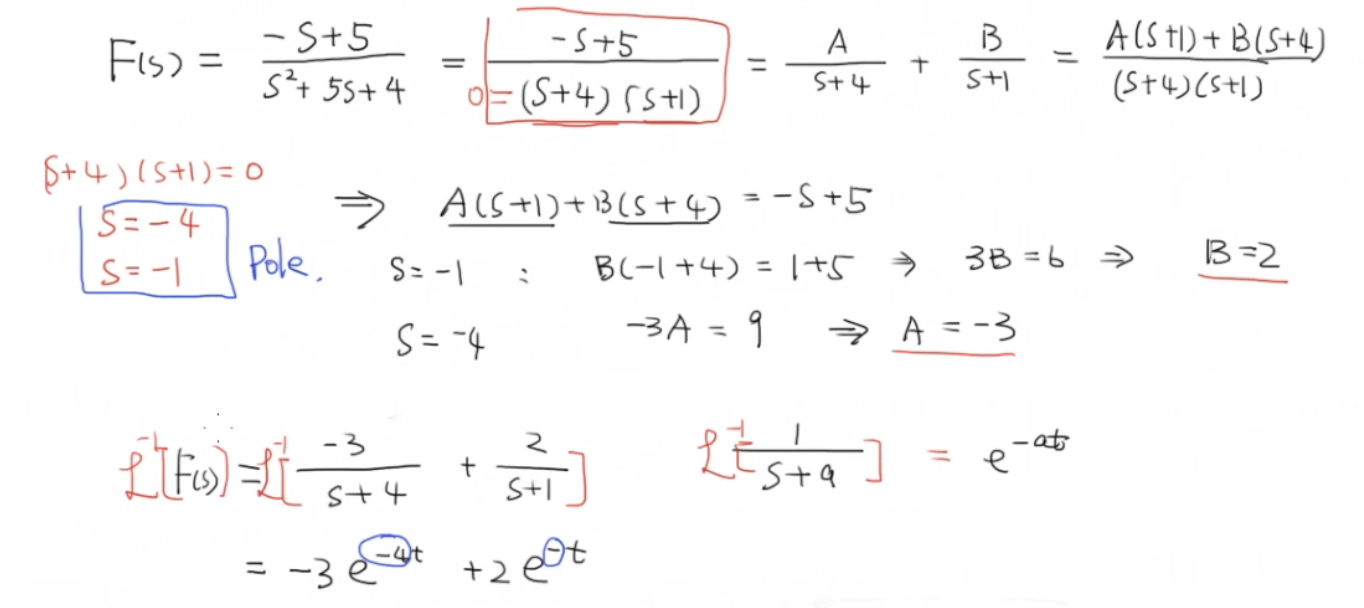 F(s) = (-s+5)/(s²+5s+4) = (-s+5)/((s+4)(s+1)) = A/(s+4) + B/(s+1) = (A(s+1)+B(s+4))/((s+4)(s+1))
0=
(s+4)(s+1)=0
⇒ A(s+1)+B(s+4) = -s+5
s=-4
s=-1 Pole.
s=-1 : B(-1+4) = 1+5 ⇒ 3B=6 ⇒ B=2
s=-4 -3A = 9 ⇒ A = -3
ℒ⁻¹[F(s)] = ℒ⁻¹[-3/(s+4) + 2/(s+1)] ℒ⁻¹[1/(s+a)] = e^(-at)
= -3e^(-4t) + 2e^(-t)